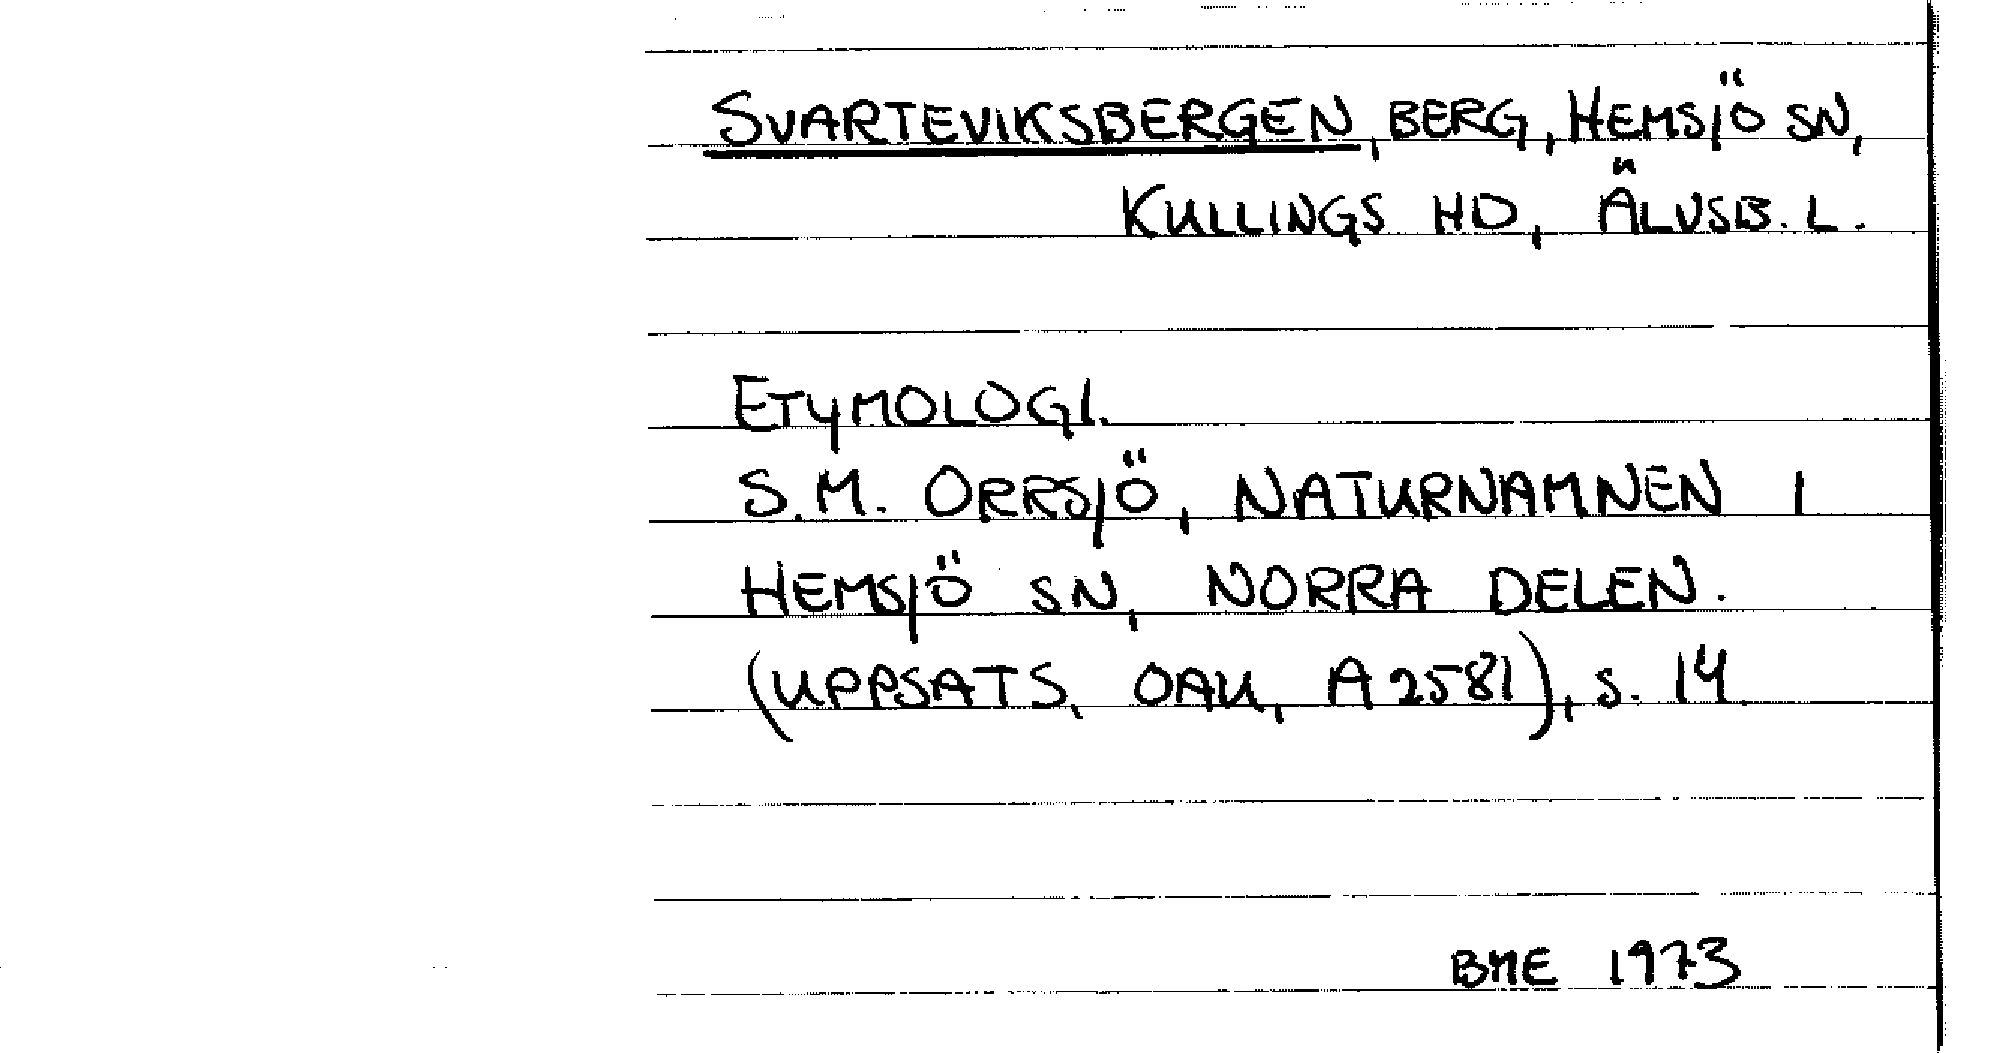 SVARTEVIKSBERGEN, BERG, HEMSJÖ SN,
KULLINGS HD, ÄLVSB. L.
ETYMOLOGI.
S.M. ORRSJÖ, NATURNAMNEN I
HEMSJÖ SN, NORRA DELEN.
(UPPSATS, OAU, A 2581), S. 14
BME 1973